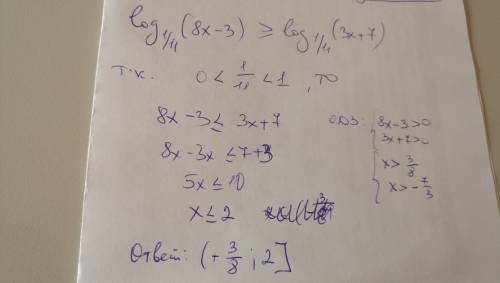 log₁/₁₁(8x-3) ≥ log₁/₁₁(3x+7)
т.к. 0 < 1/11 < 1, то
8x-3 ≤ 3x+7
8x-3x ≤ 7+3
5x ≤ 10
x ≤ 2
ОДЗ: { 8x-3>0
3x+7>0
{ x > 3/8
x > -7/3
Ответ: (+ 3/8 ; 2]